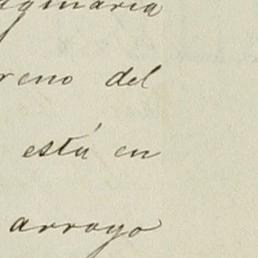 aginaria
reno del
está en
arroyo